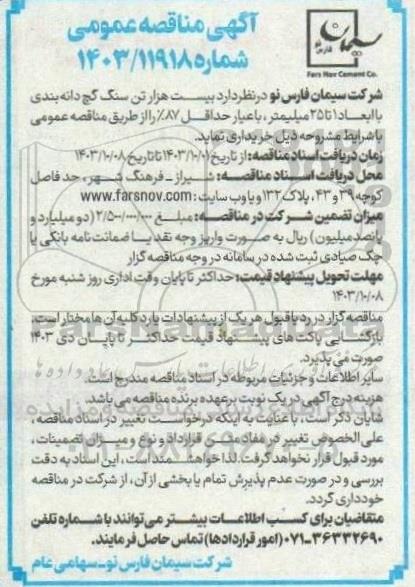 آگهی مناقصه عمومی
شماره ۱۴۰۳/۱۱۹۱۸
سیمان
فارس نو
Fars Nov Cement Co.
شرکت سیمان فارس نو در نظر دارد بیست هزار تن سنگ گچ دانه بندی
با ابعاد ۱ تا ۲۵ میلیمتر، با عیار حداقل ۸۷٪ را از طریق مناقصه عمومی
با شرایط مشروحه ذیل خریداری نماید.
زمان دریافت اسناد مناقصه: از تاریخ ۱۴۰۳/۱۰/۰۱ تا تاریخ ۱۴۰۳/۱۰/۰۸
محل دریافت اسناد مناقصه: شیراز - فرهنگ شهر، حد فاصل
کوچه ۳۹ و ۴۳، پلاک ۱۳۲ و یا وب سایت: www.farsnov.com
میزان تضمین شرکت در مناقصه: مبلغ ۲/۵۰۰/۰۰۰/۰۰۰ (دو میلیارد و
پانصد میلیون) ریال به صورت واریز وجه نقد یا ضمانت نامه بانکی یا
چک صیادی ثبت شده در سامانه در وجه مناقصه گزار
مهلت تحویل پیشنهاد قیمت: حداکثر تا پایان وقت اداری روز شنبه مورخ
۱۴۰۳/۱۰/۰۸
مناقصه گزار در رد یا قبول هر یک از پیشنهادات یا رد کلیه آن ها مختار است.
بازگشایی پاکت های پیشنهاد قیمت حداکثر تا پایان دی ۱۴۰۳
صورت می پذیرد.
سایر اطلاعات و جزئیات مربوطه در اسناد مناقصه مندرج است.
هزینه درج آگهی در یک نوبت بر عهده برنده مناقصه می باشد.
شایان ذکر است، با عنایت به اینکه درخواست تغییر در اسناد مناقصه،
علی الخصوص تغییر در مفاد متن قرارداد و نوع و میزان تضمینات،
مورد قبول قرار نخواهد گرفت. لذا خواهشمند است، این اسناد به دقت
بررسی و در صورت عدم پذیرش تمام یا بخشی از آن، از شرکت در مناقصه
خودداری گردد.
متقاضیان برای کسب اطلاعات بیشتر می توانند با شماره تلفن
۰۷۱-۳۶۳۳۲۶۹۰ (امور قراردادها) تماس حاصل فرمایند.
شرکت سیمان فارس نو - سهامی عام